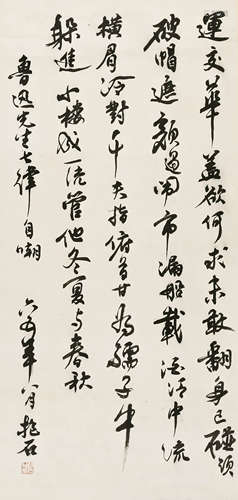 運交華蓋欲何求未敢翻身已碰頭
破帽遮顏過鬧市漏船載酒泛中流
橫眉冷對千夫指俯首甘為孺子牛
躲進小樓成一統管他冬夏與春秋
魯迅先生七律自嘲 年八月 石